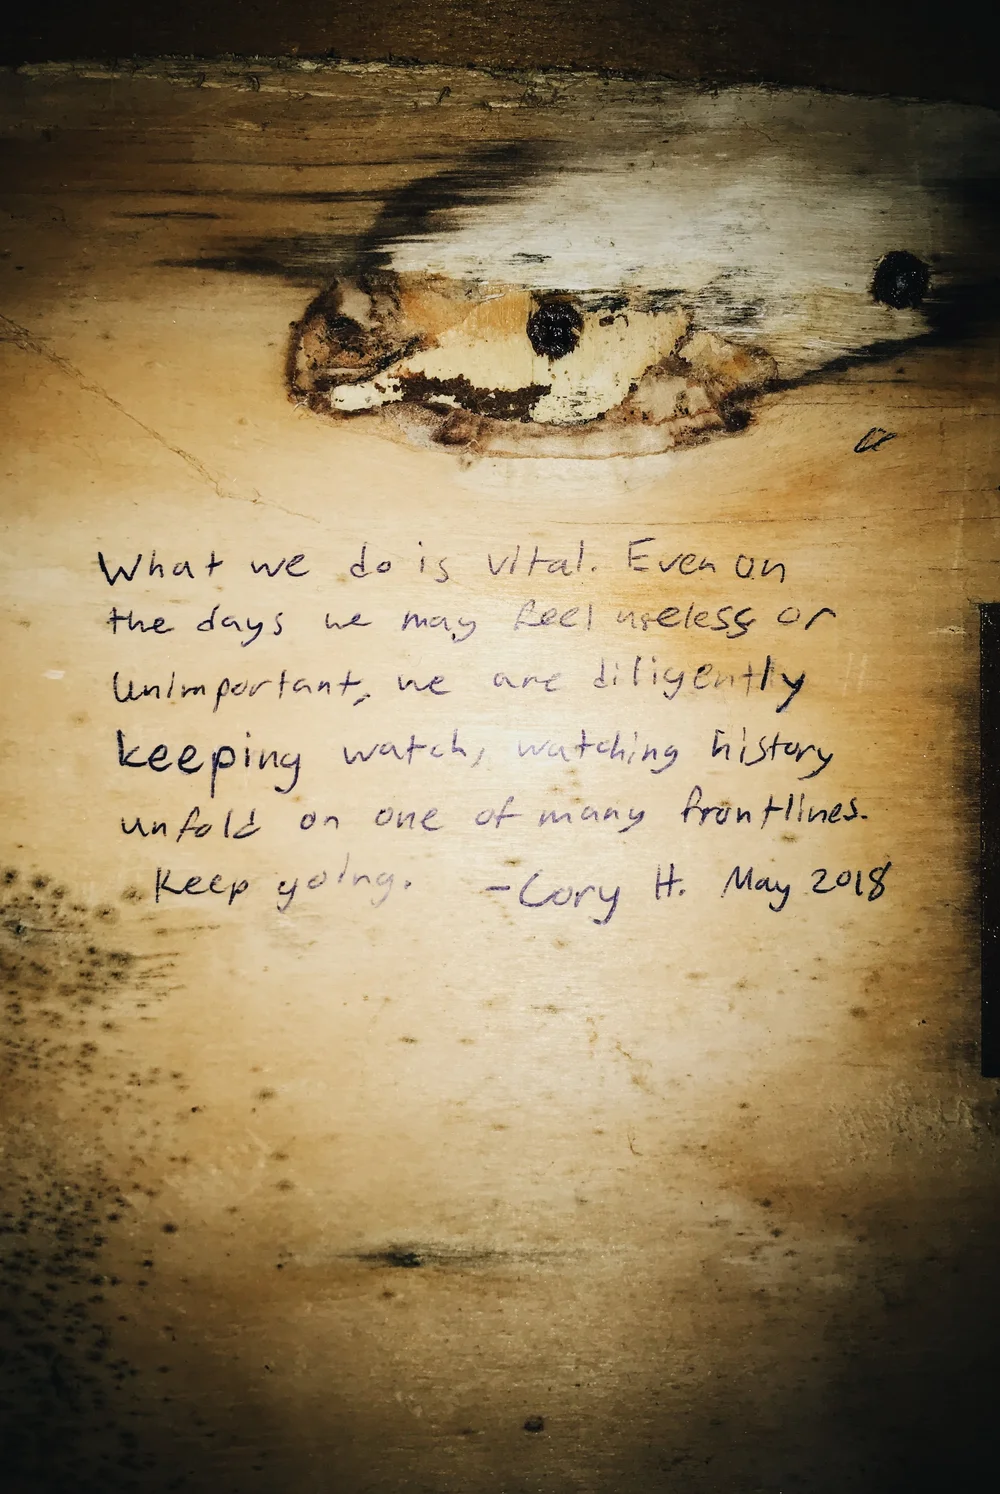 What we do is vital. Even on
the days we may feel useless or
Unimportant, we are diligently
keeping watch, watching history
unfold on one of many frontlines.
Keep going. -Cory H. May 2018